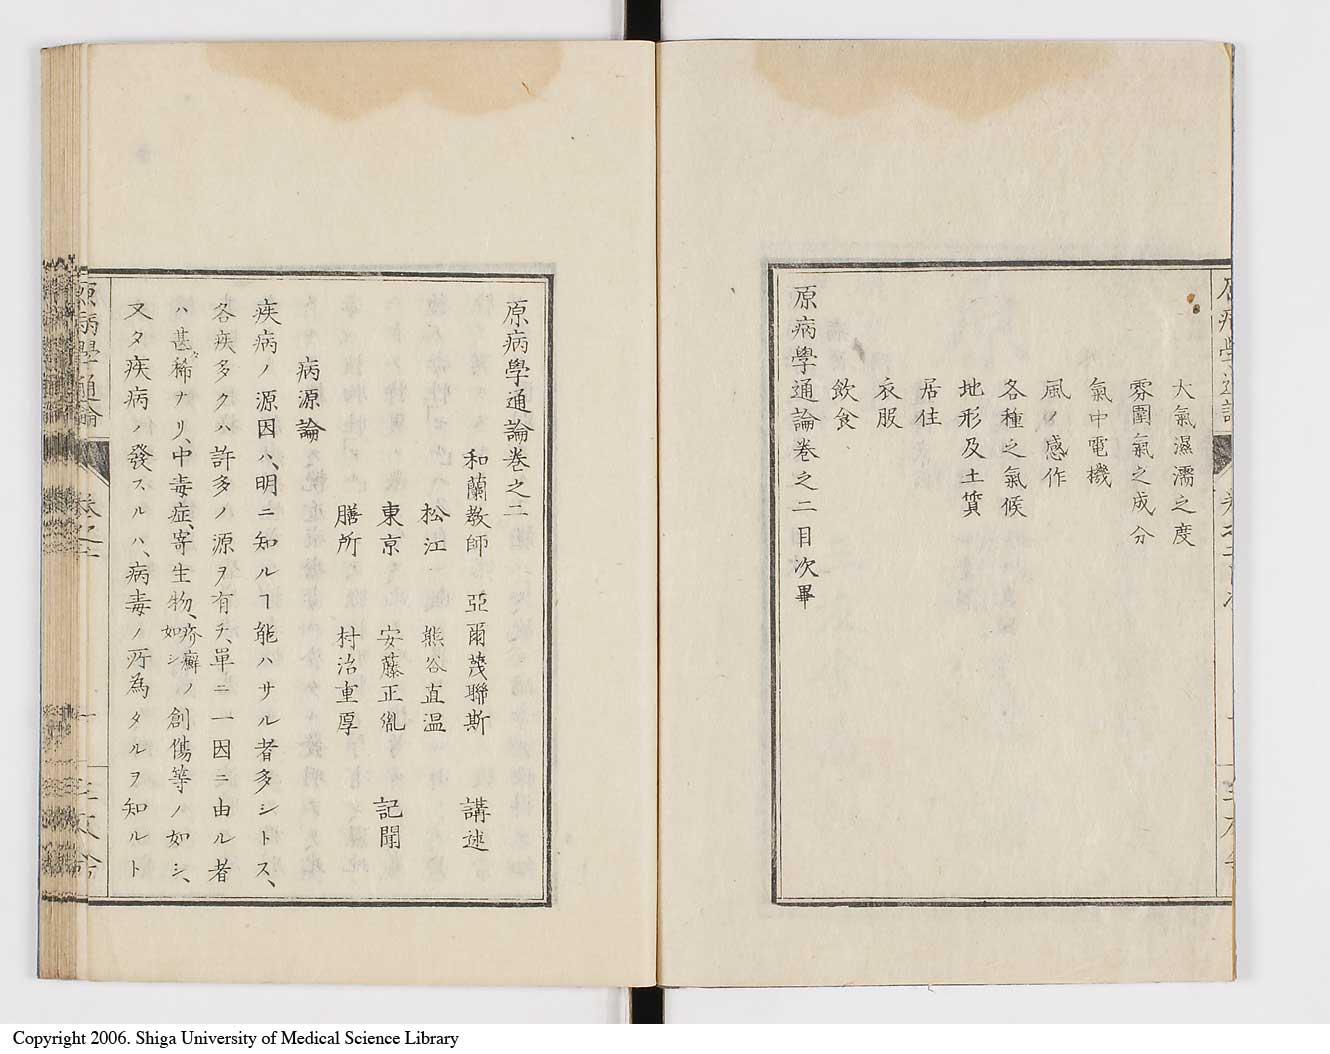 大氣濕濡之度
雰圍氣之成分
氣中電機
風ノ感作
各種之氣候
地形及土質
居住
衣服
飲食
原病學通論巻之二目次畢
原病學通論巻之二
和蘭教師 亞爾蔑聯斯 講述
松江 熊谷直温
東京 安藤正胤 記聞
膳所 村治重厚
病源論
疾病ノ源因ハ、明ニ知ルヿ能ハサル者多シトス、
各疾多クハ許多ノ源ヲ有チ、單ニ一因ニ由ル者
ハ甚タ稀ナリ、中毒症、寄生物、疥癬ノ如シ、創傷等ノ如シ、
又タ疾病ノ發スルハ、病毒ノ所為タルヲ知ルト
原病學通論
巻之二
一
三友舎
Copyright 2006. Shiga University of Medical Science Library